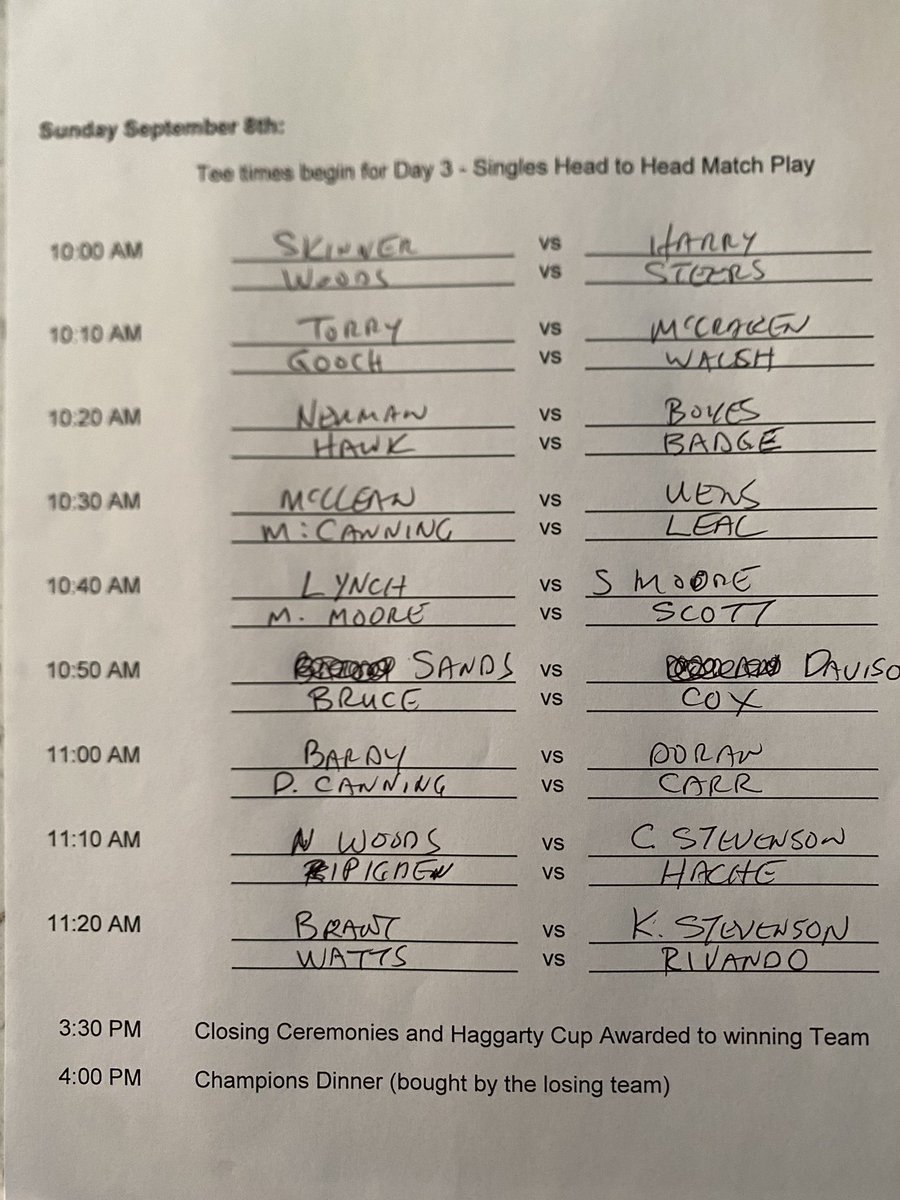 Sunday September 8th:
Tee times begin for Day 3 - Singles Head to Head Match Play
10:00 AM SKINNER vs HARRY
WOODS vs STEERS
10:10 AM TORRY vs McCRAKEN
GOOCH vs WALSH
10:20 AM NEWMAN vs BOYES
HAWK vs BADGE
10:30 AM McCLEAN vs UENS
M. CANNING vs LEAL
10:40 AM LYNCH vs S MOORE
M. MOORE vs SCOTT
10:50 AM SANDS vs DAVISO
BRUCE vs COX
11:00 AM BARDY vs DORAN
D. CANNING vs CARR
11:10 AM N WOODS vs C. STEVENSON
vs HACHE
11:20 AM BRANT vs K. STEVENSON
WATTS vs RIVANDO
3:30 PM Closing Ceremonies and Haggarty Cup Awarded to winning Team
4:00 PM Champions Dinner (bought by the losing team)